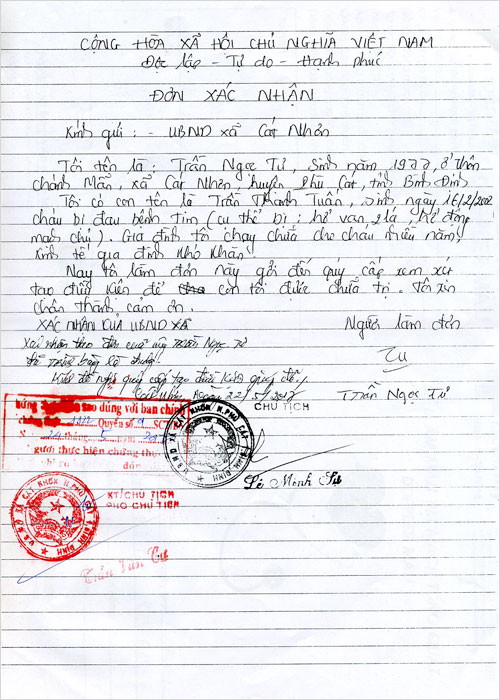 CỘNG HÒA XÃ HỘI CHỦ NGHĨA VIỆT NAM
Độc lập - Tự do - Hạnh phúc
ĐƠN XÁC NHẬN
Kính gửi : - UBND xã Cát Nhơn
Tôi tên là : Trần Ngọc Tư, sinh năm 1977, ở thôn
chánh Mẫn, xã Cát Nhơn, huyện Phù Cát, tỉnh Bình Định
Tôi có con tên là Trần Thanh Tuấn, sinh ngày 16/2/200
cháu bị đau bệnh tim (cụ thể bị : hở van 2 lá, hẹ động
mạch chủ). Gia đình tôi chạy chữa cho cháu nhiều năm,
Kinh tế gia đình khó khăn.
Nay tôi làm đơn này gởi đến quý cấp xem xét
tạo điều kiện để con tôi được chữa trị. Tôi xin
chân thành cảm ơn.
XÁC NHẬN CỦA UBND XÃ
Người làm đơn
Xác nhận theo đơn của ông Trần Ngọc Tư
là đúng.
Kính đề nghị quý cấp tạo điều kiện giúp đỡ.
Cát Nhơn, ngày 22/5/2012
Tư
Trần Ngọc Tư
CHỦ TỊCH
sao đúng với bản chính
Quyển số 9 SCT
tháng 5
gười thực hiện chứng th
U.B.N.D XÃ CÁT NHƠN H.PHÙ CÁT T.BÌNH ĐỊNH
Lê Minh
U.B.N.D XÃ CÁT NHƠN H.PHÙ CÁT T.BÌNH ĐỊNH
KT/CHỦ TỊCH
PHÓ CHỦ TỊCH
Trần